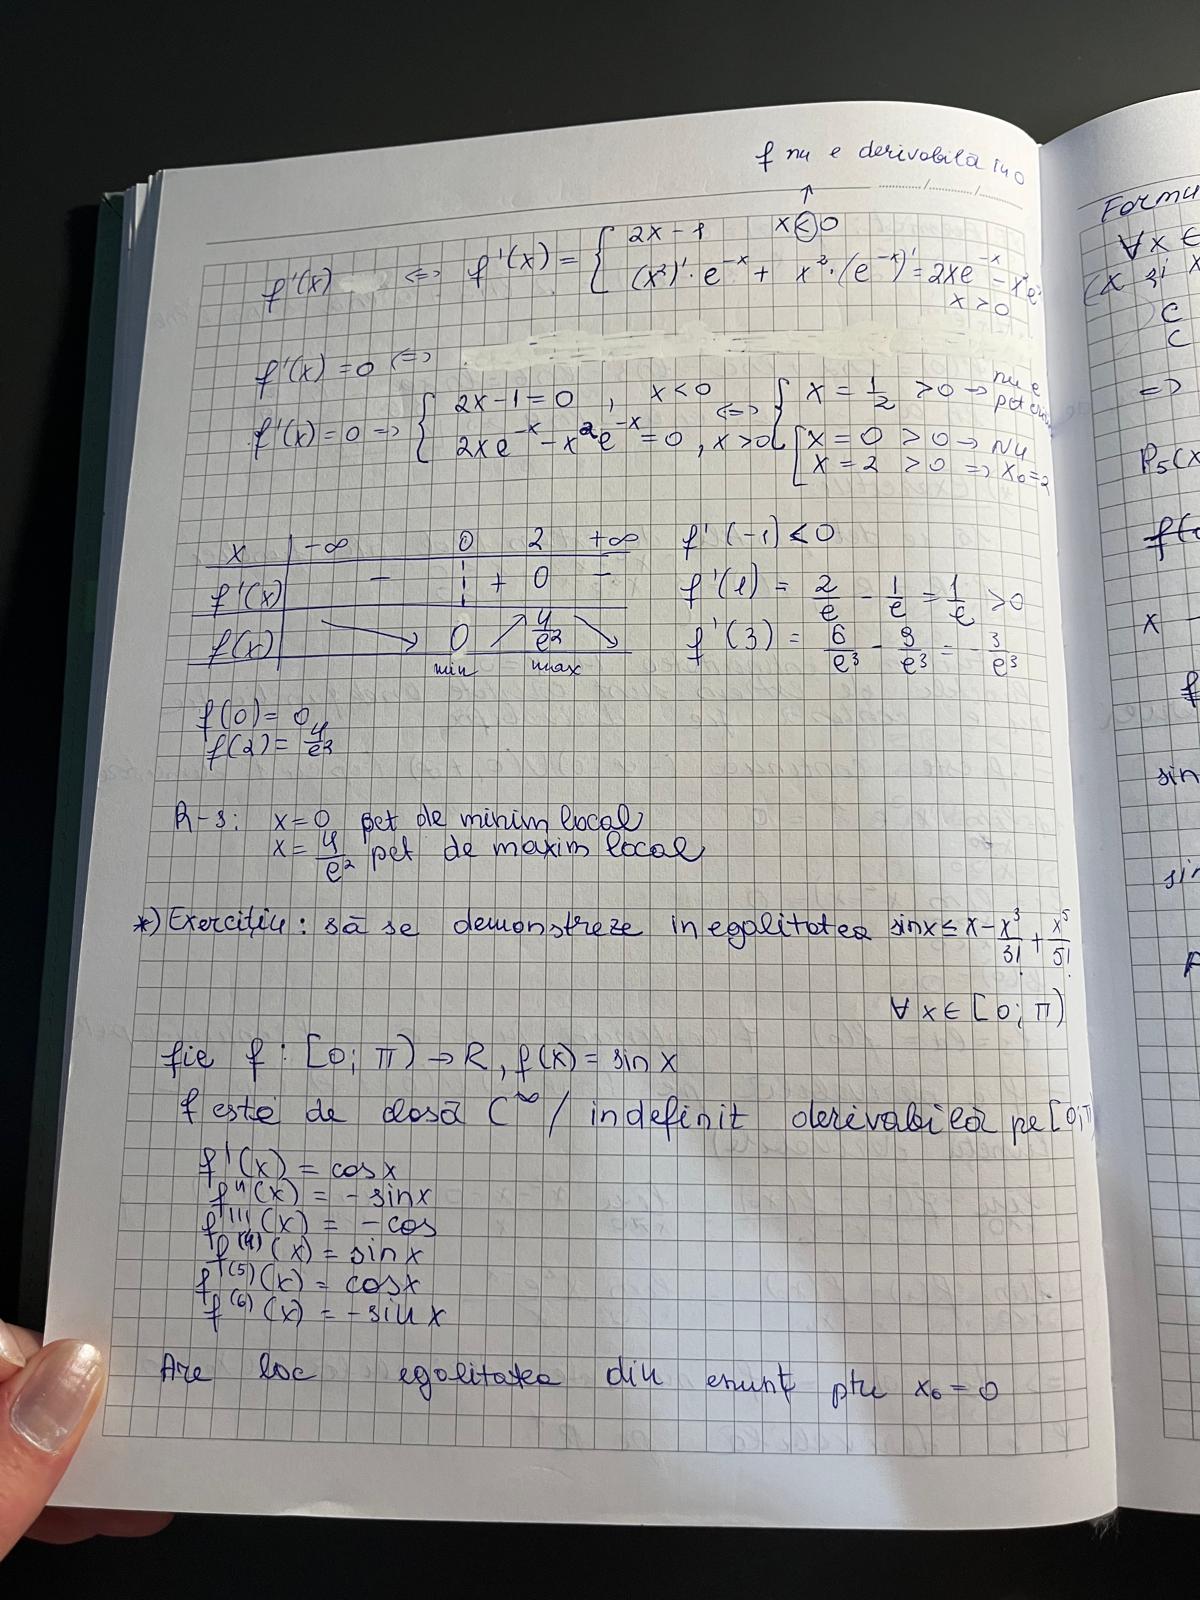 f nu e derivabilă în 0
↑
f'(x) <=> f'(x) = { 2x - 1 x < 0
(x²)'·e^-x + x²·(e^-x)' = 2xe^-x - x²e^-x
x > 0
f'(x) = 0 <=>
f'(x) = 0 => { 2x-1=0 , x < 0 <=> { x = 1/2 > 0 → nu e pct
2xe^-x - x²e^-x = 0 , x > 0 [ x = 0 > 0 → Nu
x = 2 > 0 => x₀=2
x | -∞ 0 2 +∞ f'(-1) < 0
f'(x) - + 0 - f'(1) = 2/e - 1/e = 1/e > 0
f(x) ↘ 0 ↗ 4/e² ↘ f'(3) = 6/e³ - 9/e³ = -3/e³
min max
f(0) = 0
f(2) = 4/e²
R-s: x=0 pct de minim local
x = 4/e² pct de maxim local
*) Exercițiu: să se demonstreze inegalitatea sinx ≤ x - x³/3! + x⁵/5!
∀ x ∈ [0; π)
fie f : [0; π) → R, f(x) = sin x
f este de clasă C^∞ / indefinit derivabilă pe [0; π)
f'(x) = cosx
f''(x) = -sinx
f'''(x) = -cos
f^(4)(x) = sinx
f^(5)(x) = cosx
f^(6)(x) = -sin x
Are loc egalitatea din enunț ptr x₀ = 0
∀ x ∈
(x și x
C
C
=>
P₅(x
x
f
sin